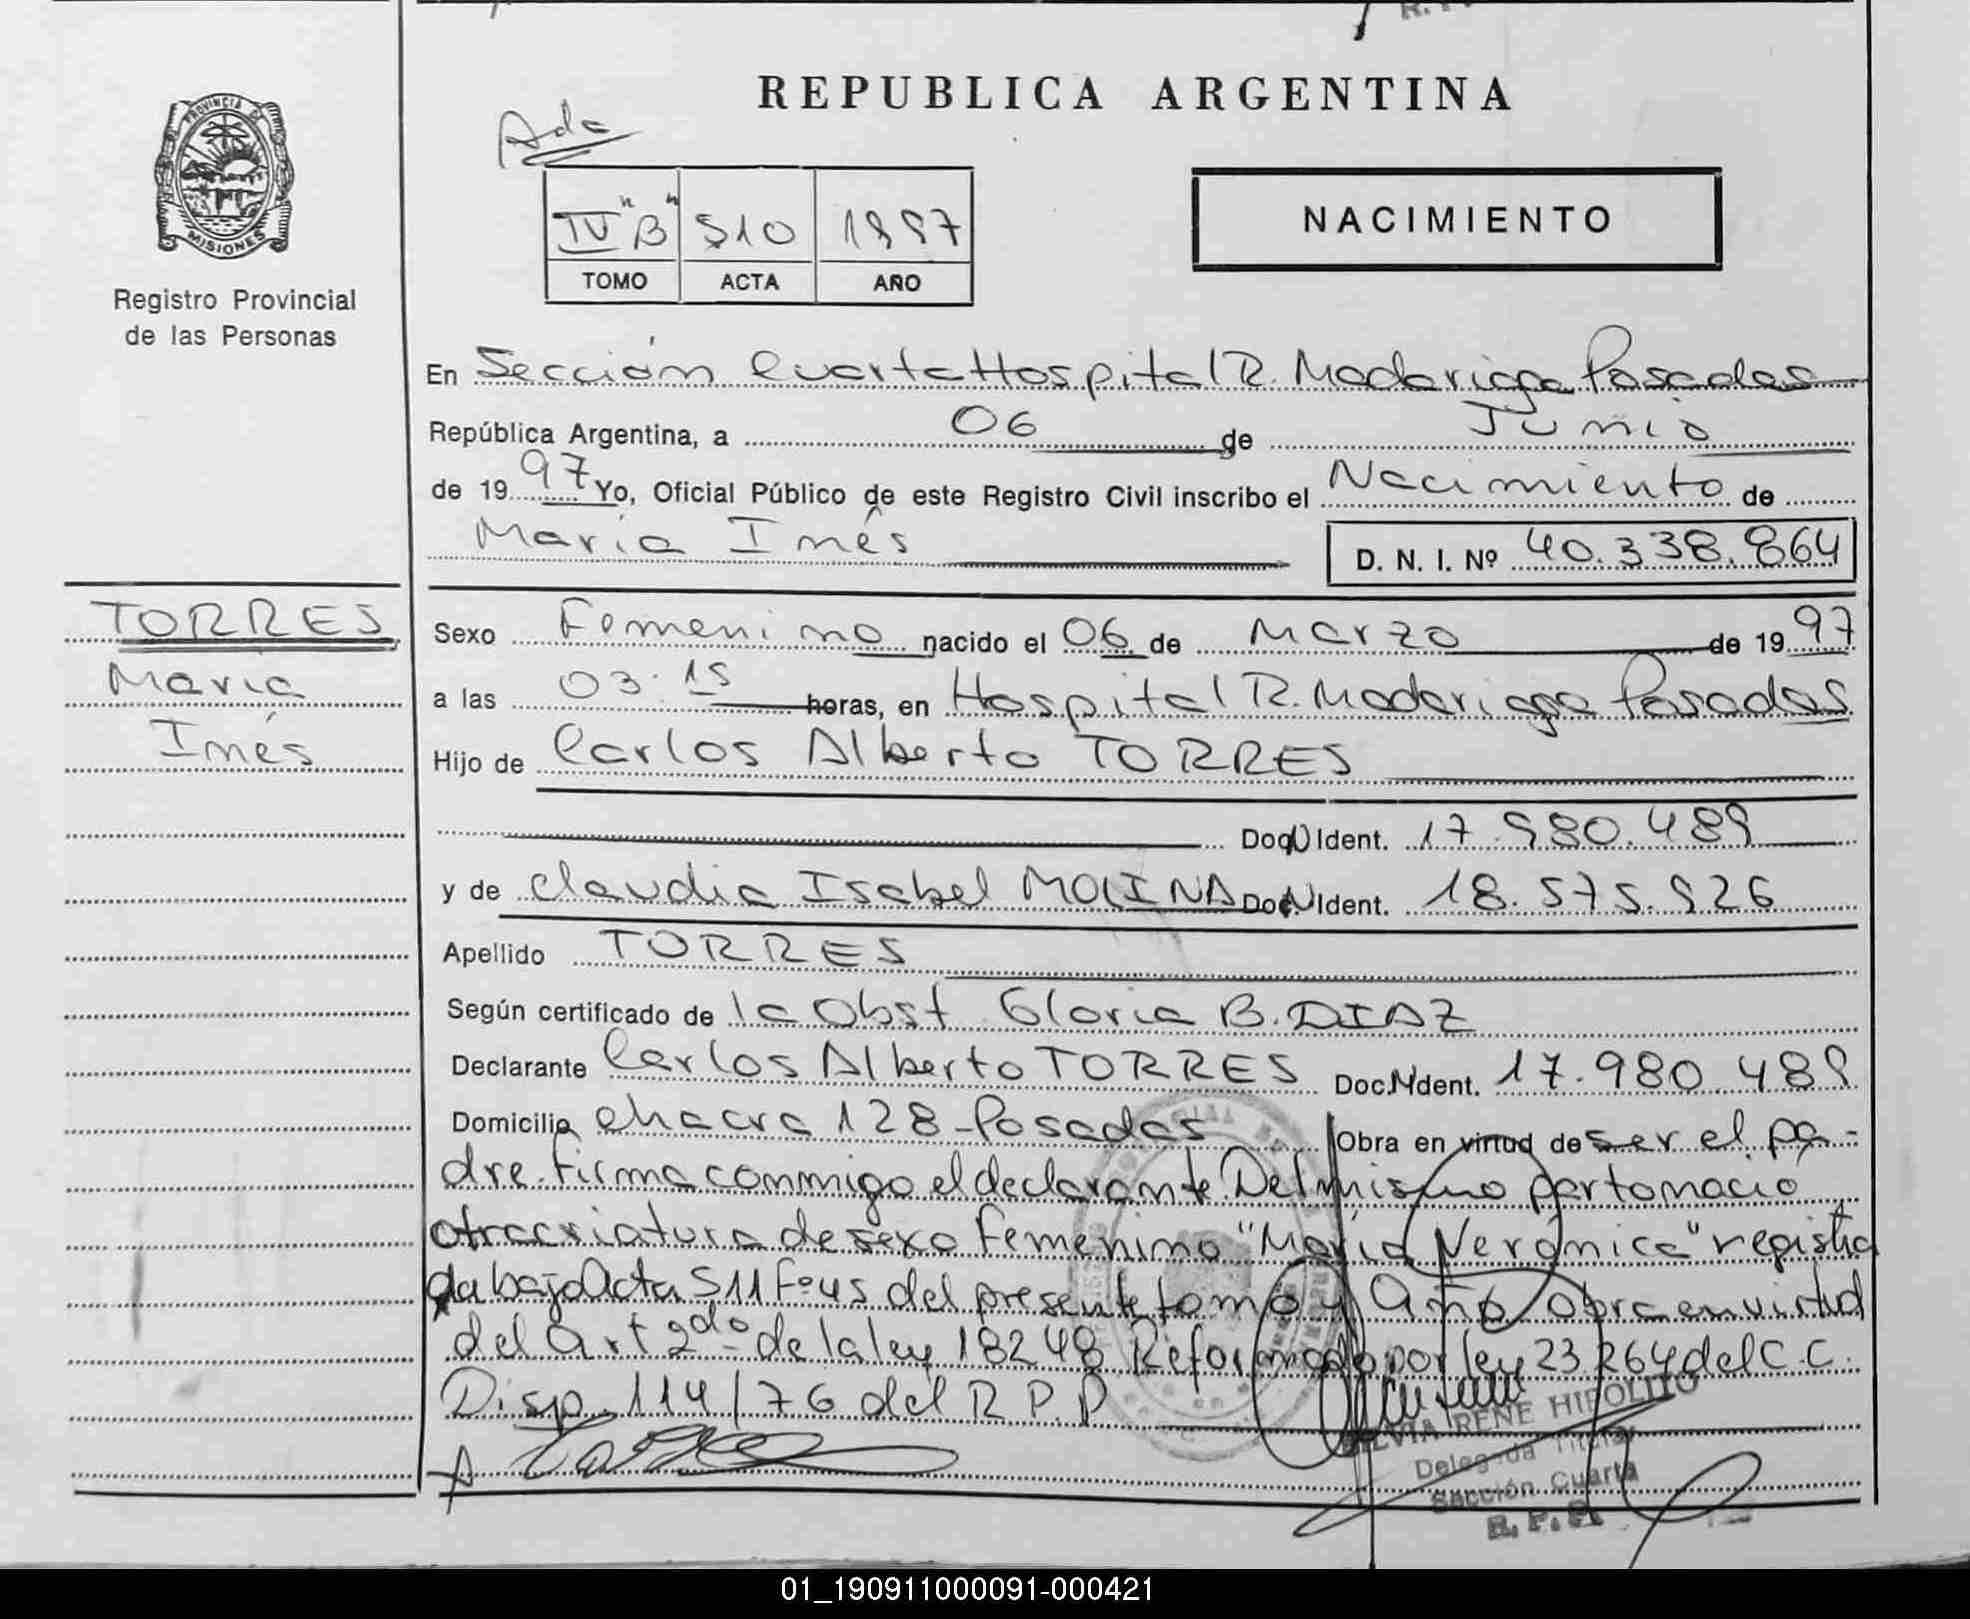 REPUBLICA ARGENTINA
PROVINCIA DE
MISIONES
Registro Provincial
de las Personas
IV "B" 510 1997
TOMO ACTA AÑO
NACIMIENTO
En Sección Cuarta Hospital R. Madariaga Posadas
República Argentina, a 06 de Junio
de 1997 Yo, Oficial Público de este Registro Civil inscribo el Nacimiento de
María Inés D. N. I. Nº 40.338.864
TORRES
María
Inés
Sexo Femenino nacido el 06 de Marzo de 1997
a las 03:15 horas, en Hospital R. Madariaga Posadas
Hijo de Carlos Alberto TORRES
Doc. Ident. 17.980.489
y de Claudia Isabel MOLINA Doc. Ident. 18.575.926
Apellido TORRES
Según certificado de la Obst Gloria B. DIAZ
Declarante Carlos Alberto TORRES Doc. Ident. 17.980.489
Domicilio Chacra 128 - Posadas Obra en virtud de ser el pa-
dre. Firma conmigo el declarante. Del mismo parto nació
otra criatura de sexo Femenino "María Verónica" registra
da bajo Acta 511 Fº 45 del presente tomo y Año, obra en virtud
del Art 2do de la ley 18248 Reformado por ley 23264 del C.C.
Disp. 114/76 del R.P.P
SILVIA IRENE HIPOLITO
Delegada Titular
Sección Cuarta
R. P. P.
01_190911000091-000421